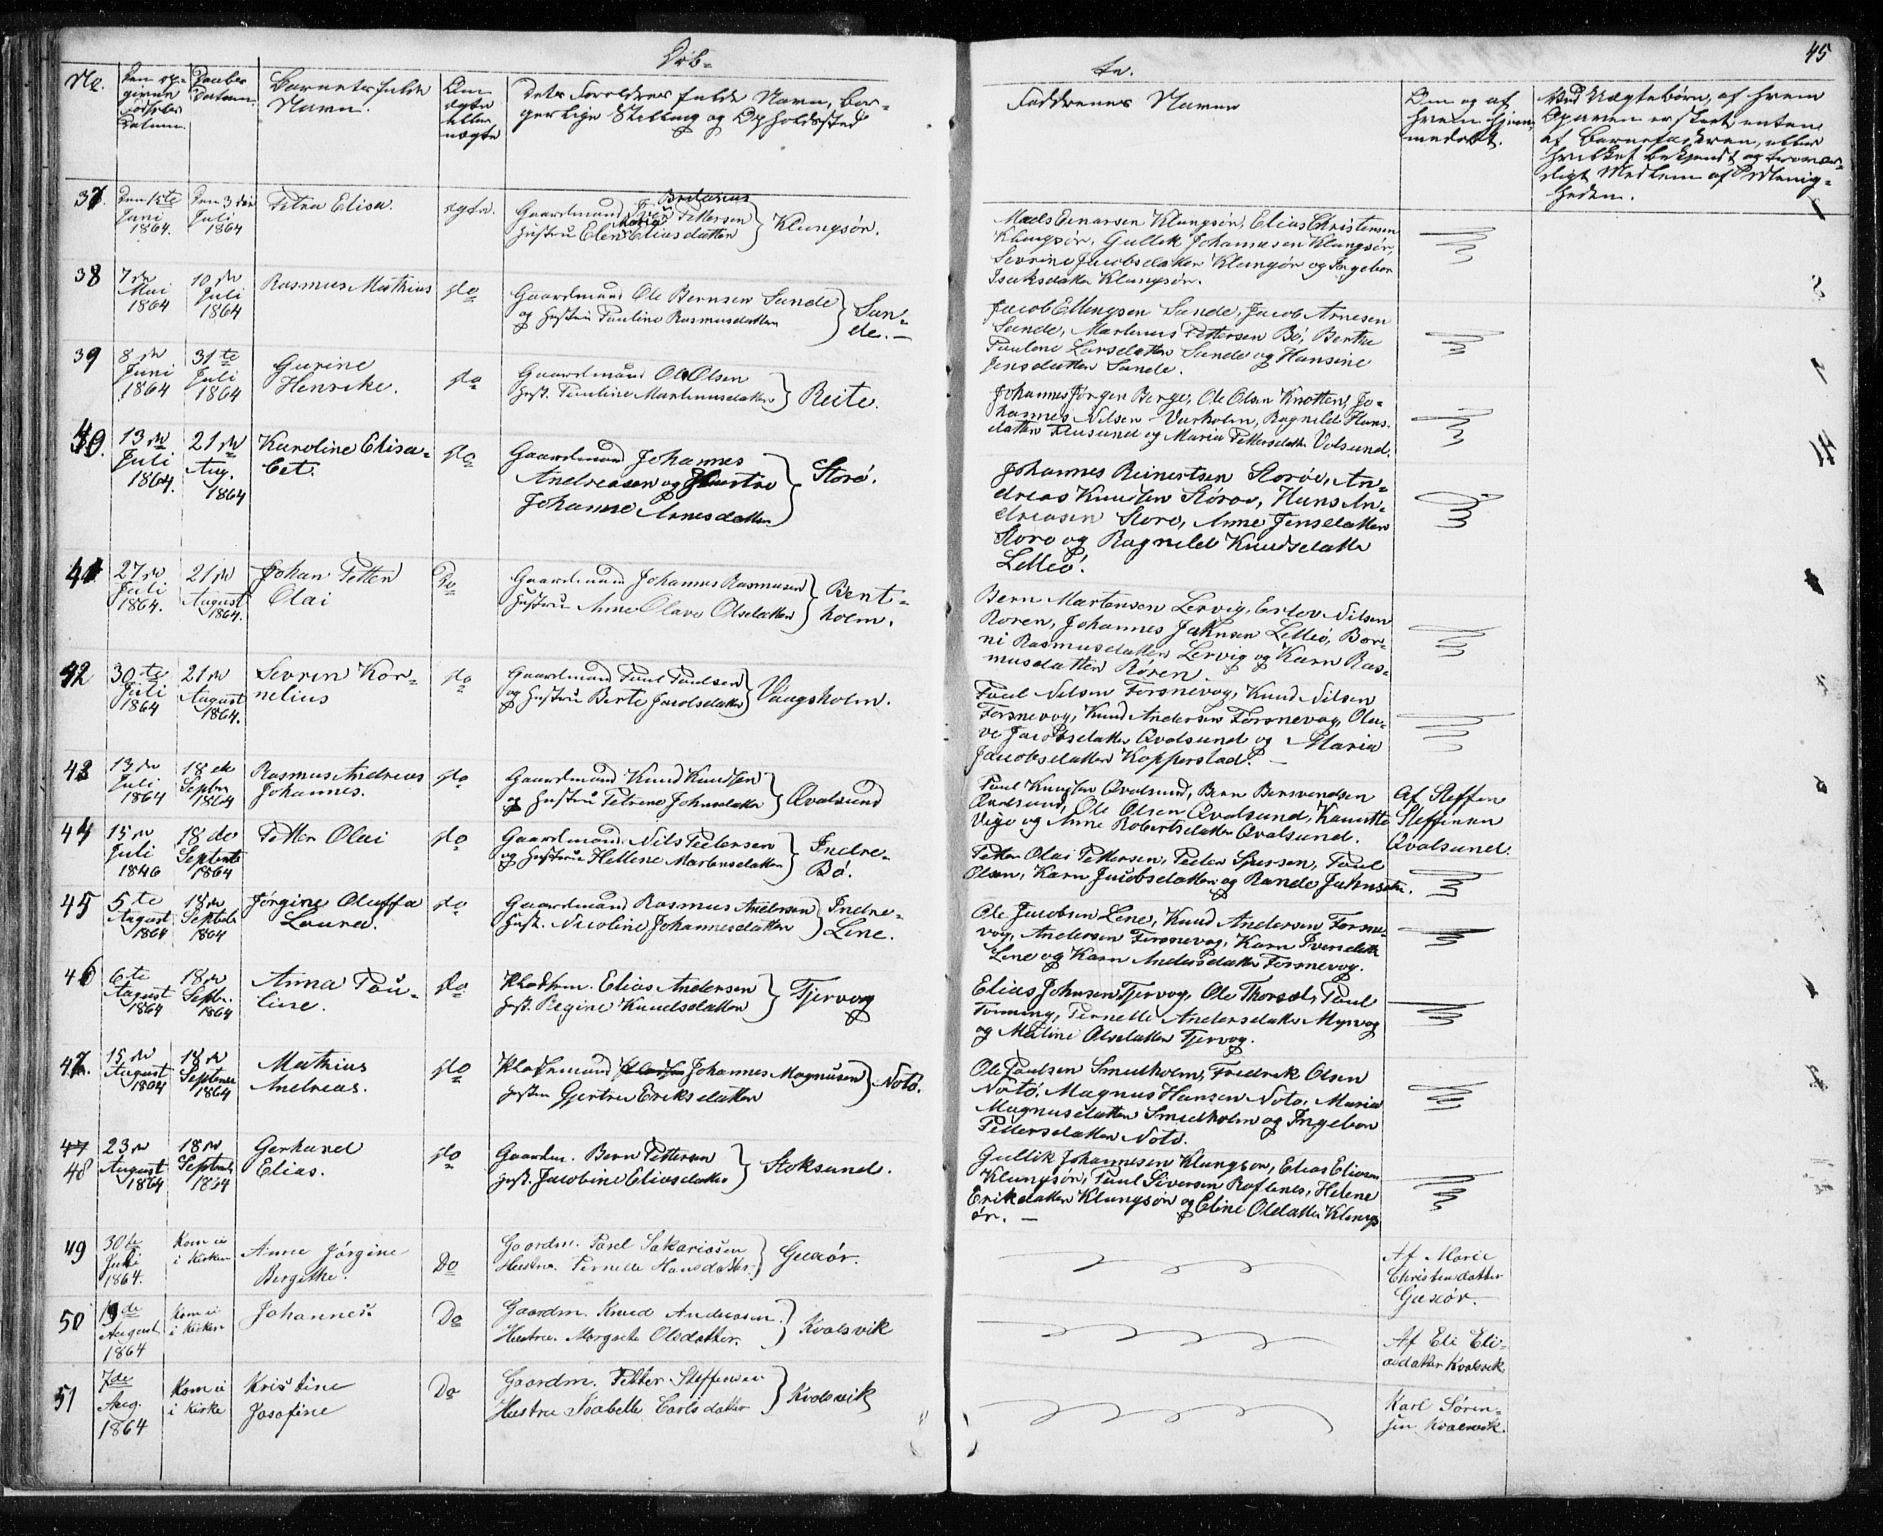 Døb-
te.
45
No.
Den op-
givne
Fødsels
Datum
Daabs
Datum.
Barnets fulde
Navn.
Om
ægte
eller
uægte
Dets Forældres fulde Navn, bor-
gerlige Stilling og Opholdssted
Faddrenes Navne
Om og af
hvem hjem-
medøbt.
Ved Uægtebørn, af hvem
Opgaven er skeet enten
af Barnefaderen, eller
hvilket bekjendt og trovær-
digt Medlem af
heden.
37.
Den 15te
Juni
1864.
Den 3die
Juli
1864
Petra Elisa.
ægte.
Gaardmand Pettersen
Hustru Elen Eliasdatter
Klungsør.
Mads Einarsen Klungsør, Elias Christensen
Klungsør, Gullik Johannesen Klungsør,
Sevrine Jacobsdatter Klungsør og Ingebor
Isaksdatter Klungsør.
38
7de
Mai
1864
10de
Juli
1864
Rasmus Mathias
do
Gaardmand Ole Bernsen Sande
og Hustru Pauline Rasmusdatter
San-
de.
Jacob Ellingsen Sande, Jacob Arnesen
Sande, Martinus Pettersen Bö, Berthe
Pauline Larsdatter Sande og Hansine
Jensdatter Sande.
39
8de
Juni
1864
31te
Juli
1864
Gurine
Henrike.
do
Gaardmand Ole Olsen
Hust. Pauline Martinusdatter
Reite.
Johannes Jörgen Berge, Ole Olsen Knotten, Jo-
hannes Nilsen Varholm, Ragnild Hans-
datter og Maria Pettersdatter Volsund.
40.
13de
Juli
1864.
21de
Aug.
1864
Karoline Elisa-
bet.
do
Gaardmand Johannes
Andreasen og Hustru
Johanne Arnesdatter
Storö.
Johannes Reinertsen Storöe, An-
dreas Knudsen Störöe, Hans An-
dreasen Storö, Anne Jensdatter
Storö og Ragnild Knudsdatter
Lelleö.
41.
27de
Juli
1864.
21de
August
1864.
Johan Petter
Olai
Do
Gaardmand Johannes Rasmusen
Hustru Anne Olave Olsdatter
Bent-
holm.
Bern Martensen Lervig, Nilsen
Rören, Johannes Johnsen Lelleö, Bor-
ni Rasmusdatter Lervig og Karn Ras-
musdatter Rören.
42
30te
Juli
1864
21de
August
1864.
Sevrin Kor-
nelius
do
Gaardmand Paul Paulsen
og Hustru Berte Jacobsdatter
Vaagsholm.
Paul Nilsen Forsnevog, Knud Nilsen
Forsnevog, Knud Andersen Forsnevog, Ola-
ve Jacobsdatter Qvalsund og Maria
Jacobsdatter Kopperstad.
43
13de
Juli
1864
18de
Septbr
1864
Rasmus Andreas
Johannes.
do
Gaardmand Knud Knudsen
og Hustru Petrine Johnsdatter
Qvalsund
Paul Knudsen Qvalsund, Bern Bersvendsen
Qvalsund, Ole Olsen Qvalsund, Kanutte
Vige og Anne Robertsdatter Qvalsund.
Af Steffen
Steffensen
Qvalsund.
44
15de
Juli
1846
18de
Septembr
1864
Petter Olai
do
Gaardmand Nils Pedersen
og Hustru Helline Martensdatter
Indre-
Bö.
Petter Olai Pettersen, Peder Sjursen, Paul
Olsen, Karn Jacobsdatter og Rande Johnsdtr.
45
5te
August
1864
18de
Septbr
1864
Jörgine Oluffa
Laura.
do
Gaardmand Rasmus Andersen
Hust. Nicoline Johannesdatter
Indre-
Leine.
Ole Jacobsen Leine, Knud Andersen Forsne-
vog, Andersen Forsnevog, Karn Svendsdtr
Leine og Karn Andersdatter Forsnevog.
46
6te
August
1864
18de
Septbr.
1864
Anna Pou-
line.
do
Pladsm. Elias Andersen
Hust. Regine Knudsdatter
Tjervog
Elias Johnsen Tjervog, Ole Thorsd, Paul
Tonning, Pernelle Andersdatter Myrvog
og Maline Olsdatter Tjervog.
47.
15de
August
1864
18de
September
1864
Mathias
Andreas.
do
Pladsmand Johannes Magnusen
Hustru Gjertrue Eriksdatter
Notö.
Ole Paulsen Smedholm, Fredrik Olsen
Nötö, Magnus Hansen Notö, Maria
Magnusdatter Smedholm og Ingebor
Pettersdatter Notö.
47
48
23de
August
1864
18de
Septbr
1864
Gerhard
Elias.
do
Gaardm. Bern Pettersen
Hust. Jacobine Eliasdatter
Stoksund.
Gullik Johannesen Klungsør, Elias Eliasen
Klungsör, Paul Siversen Rafteneś, Helene
Eriksdatter Klungsör og Eline Olsdatter Klungs
ør.
49
30te
Juli
1864.
Kom ei
i Kirken
Anne Jörgine
Bergitte.
Do
Gaardm. Pavel Sakariasen
Hustru. Pernele Hansdatter.
Gusiör.
Af Marie
Christendatter
Gusiör.
50
19de
August
1864
Kom ei
i Kirken
Johannes.
Do
Gaardm. Knud Andreasen.
Hustru. Margrete Olsdatter.
Kvalsvik
Af Eli Eli-
asdatter Kvalsvik
51
7de
Aug.
1864
Kom ei
i Kirke
Kristine
Josefine
Do
Gaardm. Petter Steffensen
Hustru Isabelle Carlsdatter
Kvalsvik
Karl Sören-
sen Kvalsvik.